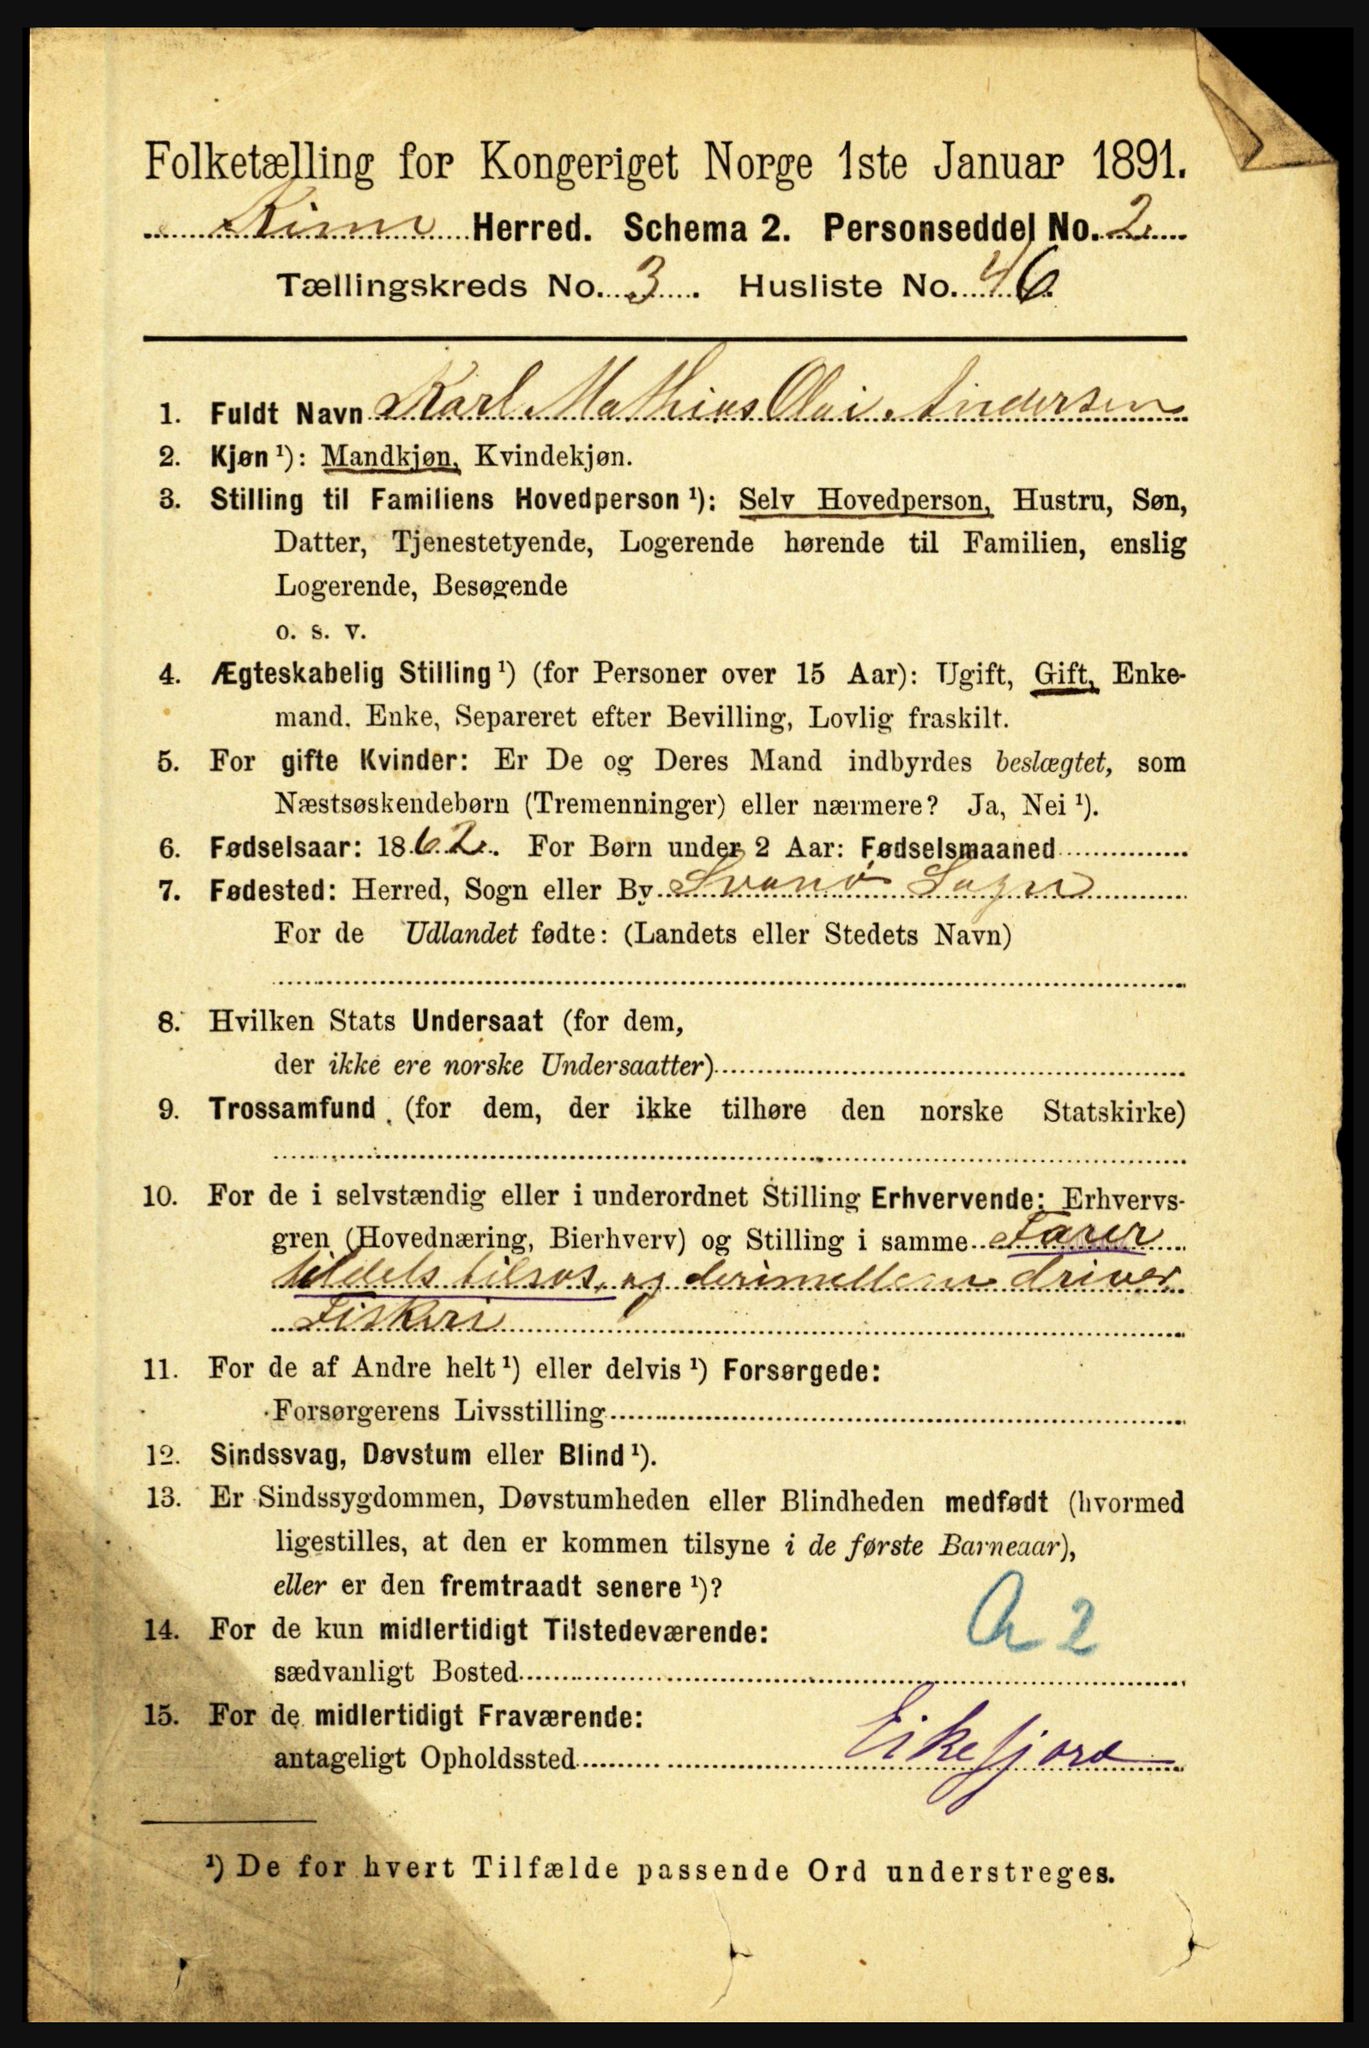 Folketælling for Kongeriget Norge 1ste Januar 1891.
Kinn Herred. Schema 2. Personseddel No. 2
Tællingskreds No. 3. Husliste No. 46
1. Fuldt Navn Karl Mathias Olai Andersen
2. Kjøn ¹): Mandkjøn, Kvindekjøn.
3. Stilling til Familiens Hovedperson ¹): Selv Hovedperson, Hustru, Søn,
Datter, Tjenestetyende, Logerende hørende til Familien, enslig
Logerende, Besøgende
o. s. v.
4. Ægteskabelig Stilling ¹) (for Personer over 15 Aar): Ugift, Gift, Enke-
mand, Enke, Separeret efter Bevilling, Lovlig fraskilt.
5. For gifte Kvinder: Er De og Deres Mand indbyrdes beslægtet, som
Næstsøskendebørn (Tremenninger) eller nærmere? Ja, Nei ¹).
6. Fødselsaar: 1862. For Børn under 2 Aar: Fødselsmaaned
7. Fødested: Herred, Sogn eller By Svanø Sogn
For de Udlandet fødte: (Landets eller Stedets Navn)
8. Hvilken Stats Undersaat (for dem,
der ikke ere norske Undersaatter)
9. Trossamfund (for dem, der ikke tilhøre den norske Statskirke)
10. For de i selvstændig eller i underordnet Stilling Erhvervende: Erhvervs-
gren (Hovednæring, Bierhverv) og Stilling i samme Farer
tildels tilsøs, og derimellem driver
Fiskeri
11. For de af Andre helt ¹) eller delvis ¹) Forsørgede:
Forsørgerens Livsstilling
12. Sindssvag, Døvstum eller Blind ¹).
13. Er Sindssygdommen, Døvstumheden eller Blindheden medfødt (hvormed
ligestilles, at den er kommen tilsyne i de første Barneaar),
eller er den fremtraadt senere ¹)?
a 2
14. For de kun midlertidigt Tilstedeværende:
sædvanligt Bosted
15. For de midlertidigt Fraværende:
antageligt Opholdssted Eikefjord
¹) De for hvert Tilfælde passende Ord understreges.